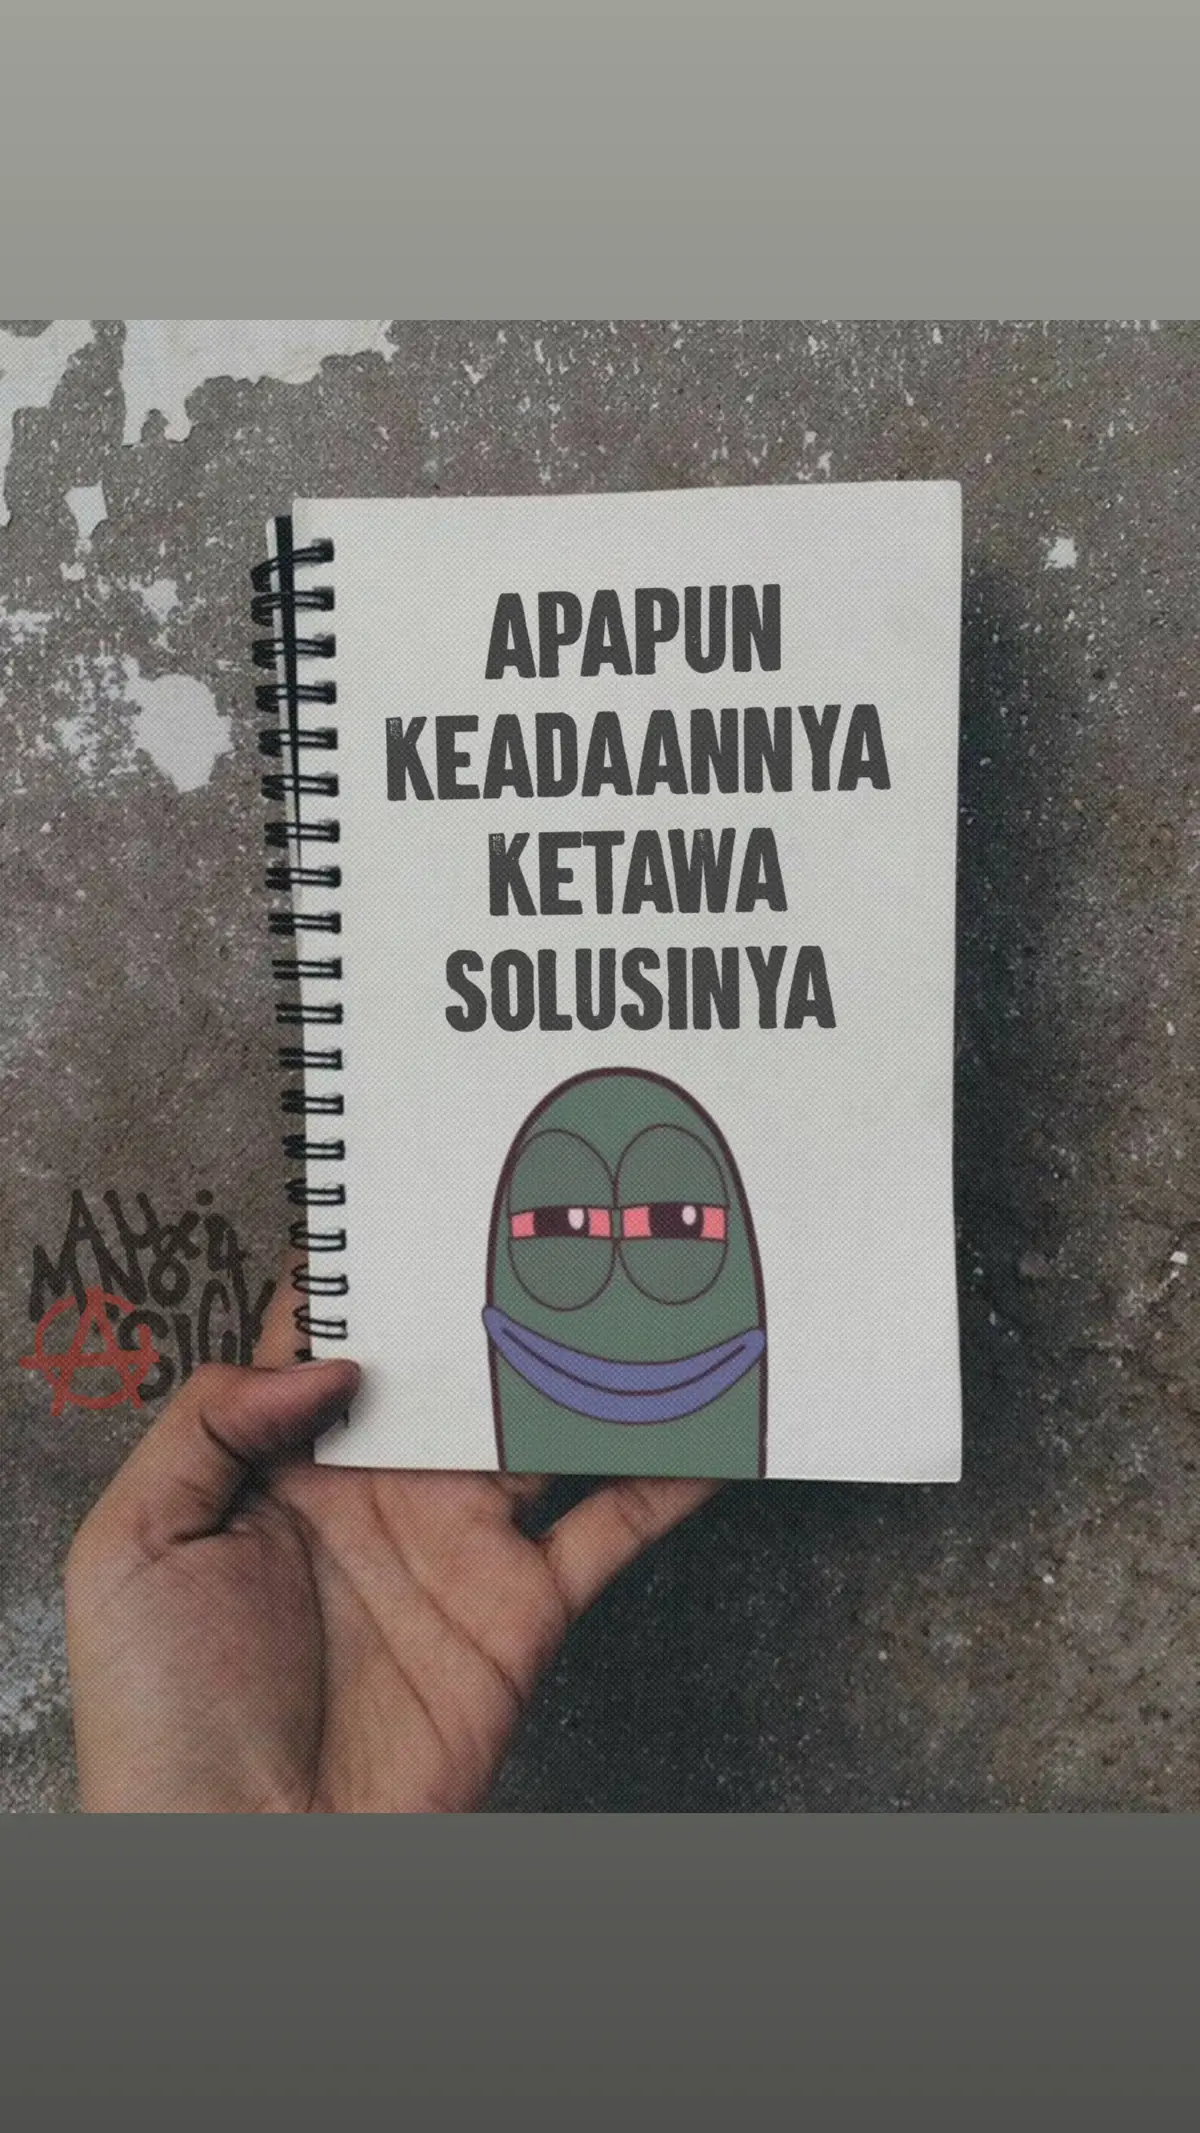 APAPUN
KEADAANNYA
KETAWA
SOLUSINYA